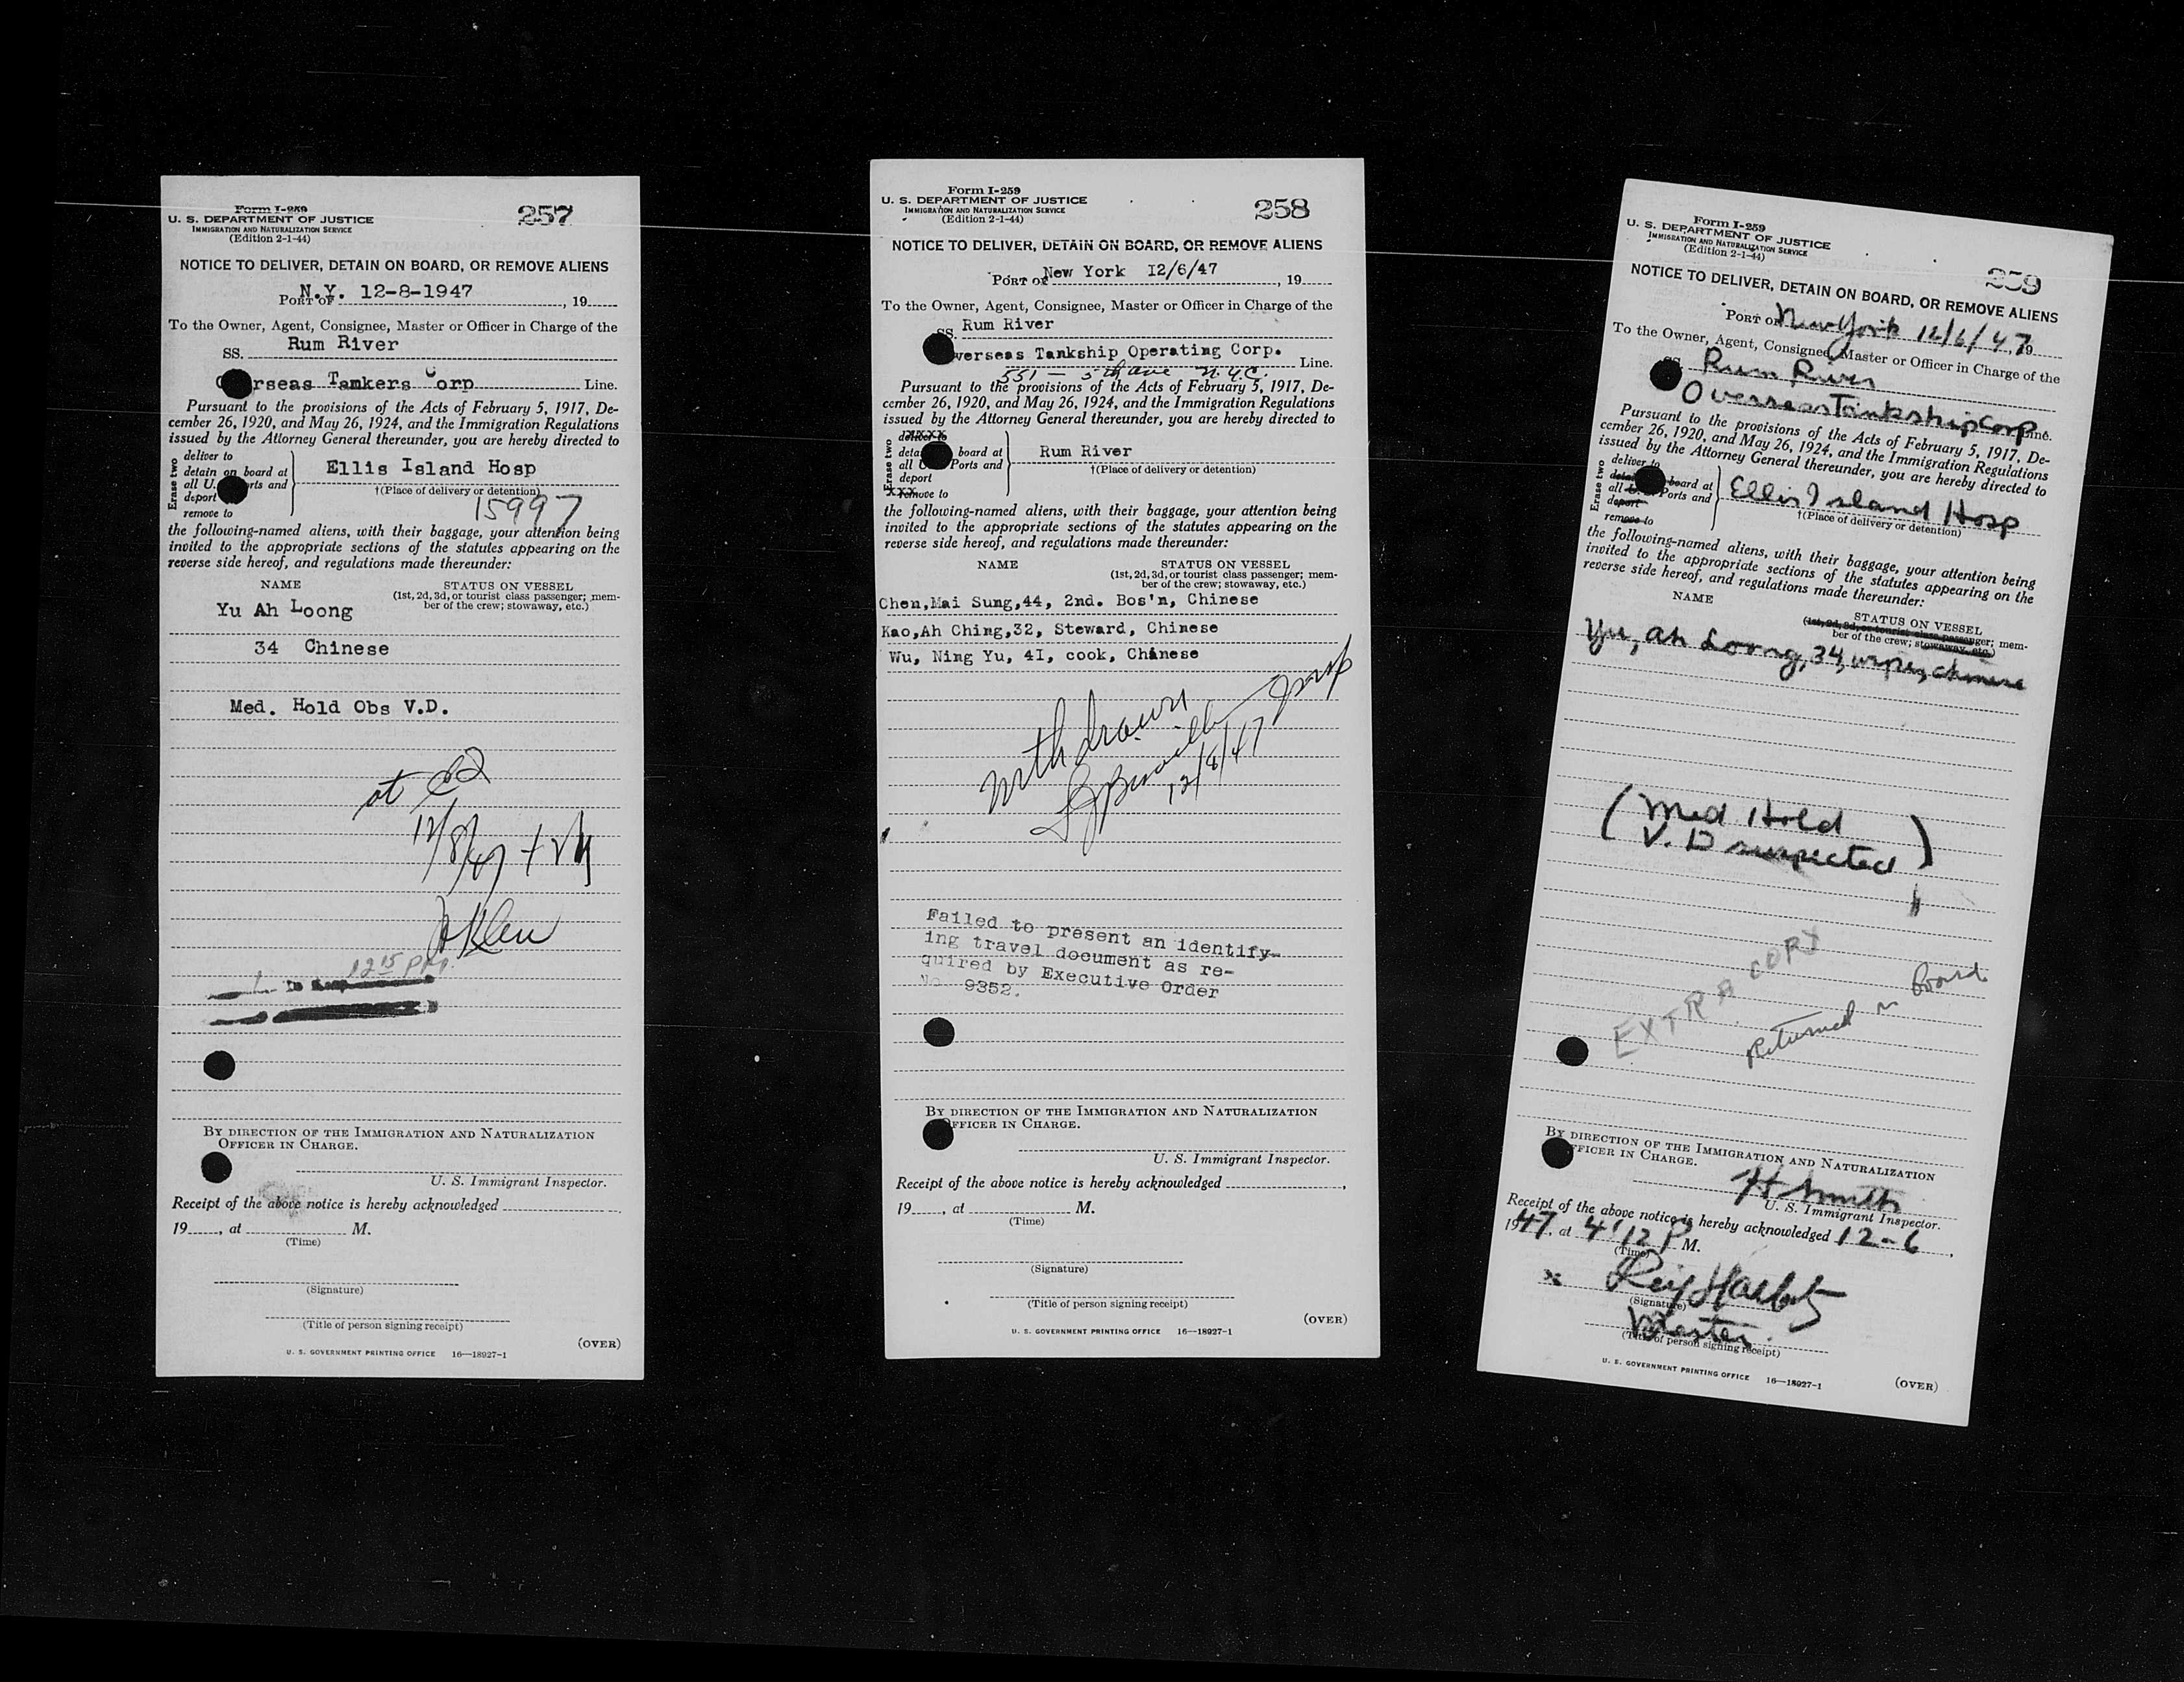 Form I-259
U. S. DEPARTMENT OF JUSTICE
IMMIGRATION AND NATURALIZATION SERVICE
(Edition 2-1-44)
257
NOTICE TO DELIVER, DETAIN ON BOARD, OR REMOVE ALIENS
PORT OF N.Y. 12-8-1947, 19
To the Owner, Agent, Consignee, Master or Officer in Charge of the
SS. Rum River
rseas Tamkers Corp Line.
Pursuant to the provisions of the Acts of February 5, 1917, De-
cember 26, 1920, and May 26, 1924, and the Immigration Regulations
issued by the Attorney General thereunder, you are hereby directed to
Erase two
deliver to
detain on board at
all U. rts and
deport
remove to
Ellis Island Hosp
†(Place of delivery or detention)
15997
the following-named aliens, with their baggage, your attention being
invited to the appropriate sections of the statutes appearing on the
reverse side hereof, and regulations made thereunder:
NAME STATUS ON VESSEL
(1st, 2d, 3d, or tourist class passenger; mem-
ber of the crew; stowaway, etc.)
Yu Ah Loong
34 Chinese
Med. Hold Obs V.D.
at
12/8/47
12 15 PM.
BY DIRECTION OF THE IMMIGRATION AND NATURALIZATION
OFFICER IN CHARGE.
U. S. Immigrant Inspector.
Receipt of the above notice is hereby acknowledged
19, at M.
(Time)
(Signature)
(Title of person signing receipt)
(OVER)
U. S. GOVERNMENT PRINTING OFFICE 16—18927-1
Form I-259
U. S. DEPARTMENT OF JUSTICE
IMMIGRATION AND NATURALIZATION SERVICE
(Edition 2-1-44)
258
NOTICE TO DELIVER, DETAIN ON BOARD, OR REMOVE ALIENS
PORT OF New York 12/6/47, 19
To the Owner, Agent, Consignee, Master or Officer in Charge of the
SS. Rum River
verseas Tankship Operating Corp. Line.
551 — 5th ave N.Y.C.
Pursuant to the provisions of the Acts of February 5, 1917, De-
cember 26, 1920, and May 26, 1924, and the Immigration Regulations
issued by the Attorney General thereunder, you are hereby directed to
Erase two
deliver to
detai board at
all U Ports and
deport
remove to
Rum River
†(Place of delivery or detention)
the following-named aliens, with their baggage, your attention being
invited to the appropriate sections of the statutes appearing on the
reverse side hereof, and regulations made thereunder:
NAME STATUS ON VESSEL
(1st, 2d, 3d, or tourist class passenger; mem-
ber of the crew; stowaway, etc.)
Chen,Mai Sung,44, 2nd. Bos'n, Chinese
Kao,Ah Ching,32, Steward, Chinese
Wu, Ning Yu, 4I, cook, Chinese
Withdrawn
12/8/47
Failed to present an identify-
ing travel document as re-
quired by Executive Order
No. 9352.
BY DIRECTION OF THE IMMIGRATION AND NATURALIZATION
FFICER IN CHARGE.
U. S. Immigrant Inspector.
Receipt of the above notice is hereby acknowledged
19, at M.
(Time)
(Signature)
(Title of person signing receipt)
(OVER)
U. S. GOVERNMENT PRINTING OFFICE 16—18927-1
Form I-259
U. S. DEPARTMENT OF JUSTICE
IMMIGRATION AND NATURALIZATION SERVICE
(Edition 2-1-44)
259
NOTICE TO DELIVER, DETAIN ON BOARD, OR REMOVE ALIENS
PORT OF New York 12/6/47, 19
To the Owner, Agent, Consignee, Master or Officer in Charge of the
SS. Rum River
Overseas Tankship Corp Line.
Pursuant to the provisions of the Acts of February 5, 1917, De-
cember 26, 1920, and May 26, 1924, and the Immigration Regulations
issued by the Attorney General thereunder, you are hereby directed to
Erase two
deliver to
detai board at
all U. Ports and
deport
remove to
Ellis Island Hosp
†(Place of delivery or detention)
the following-named aliens, with their baggage, your attention being
invited to the appropriate sections of the statutes appearing on the
reverse side hereof, and regulations made thereunder:
NAME STATUS ON VESSEL
(1st, 2d, 3d, or tourist class passenger; mem-
ber of the crew; stowaway, etc.)
Yu, Ah Loong, 34, wiper, chinese
(Med Hold
V.D suspected)
EXTRA COPY
Returned on Board
BY DIRECTION OF THE IMMIGRATION AND NATURALIZATION
FFICER IN CHARGE.
H Smith
U. S. Immigrant Inspector.
Receipt of the above notice is hereby acknowledged 12-6,
1947, at 4:12 P M.
(Time)
x
(Signature)
Master.
(Title of person signing receipt)
(OVER)
U. S. GOVERNMENT PRINTING OFFICE 16—18927-1